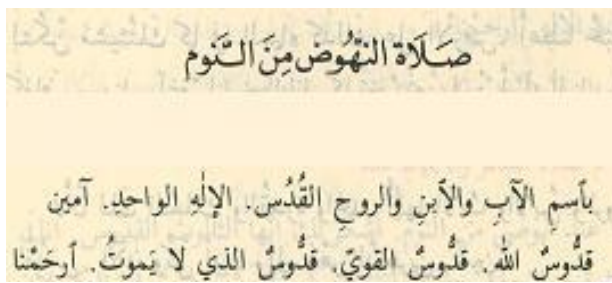 صَلَاة النهُوض مِنَ النَّوم
بٱسمِ الآبِ والٱبنِ والروحِ القُدُس. الإلٰهِ الواحدِ. آمين
قدُّوسٌ الله. قدُّوسٌ القويّ. قدُّوسٌ الذي لا يَموتُ. ٱرحَمْنا